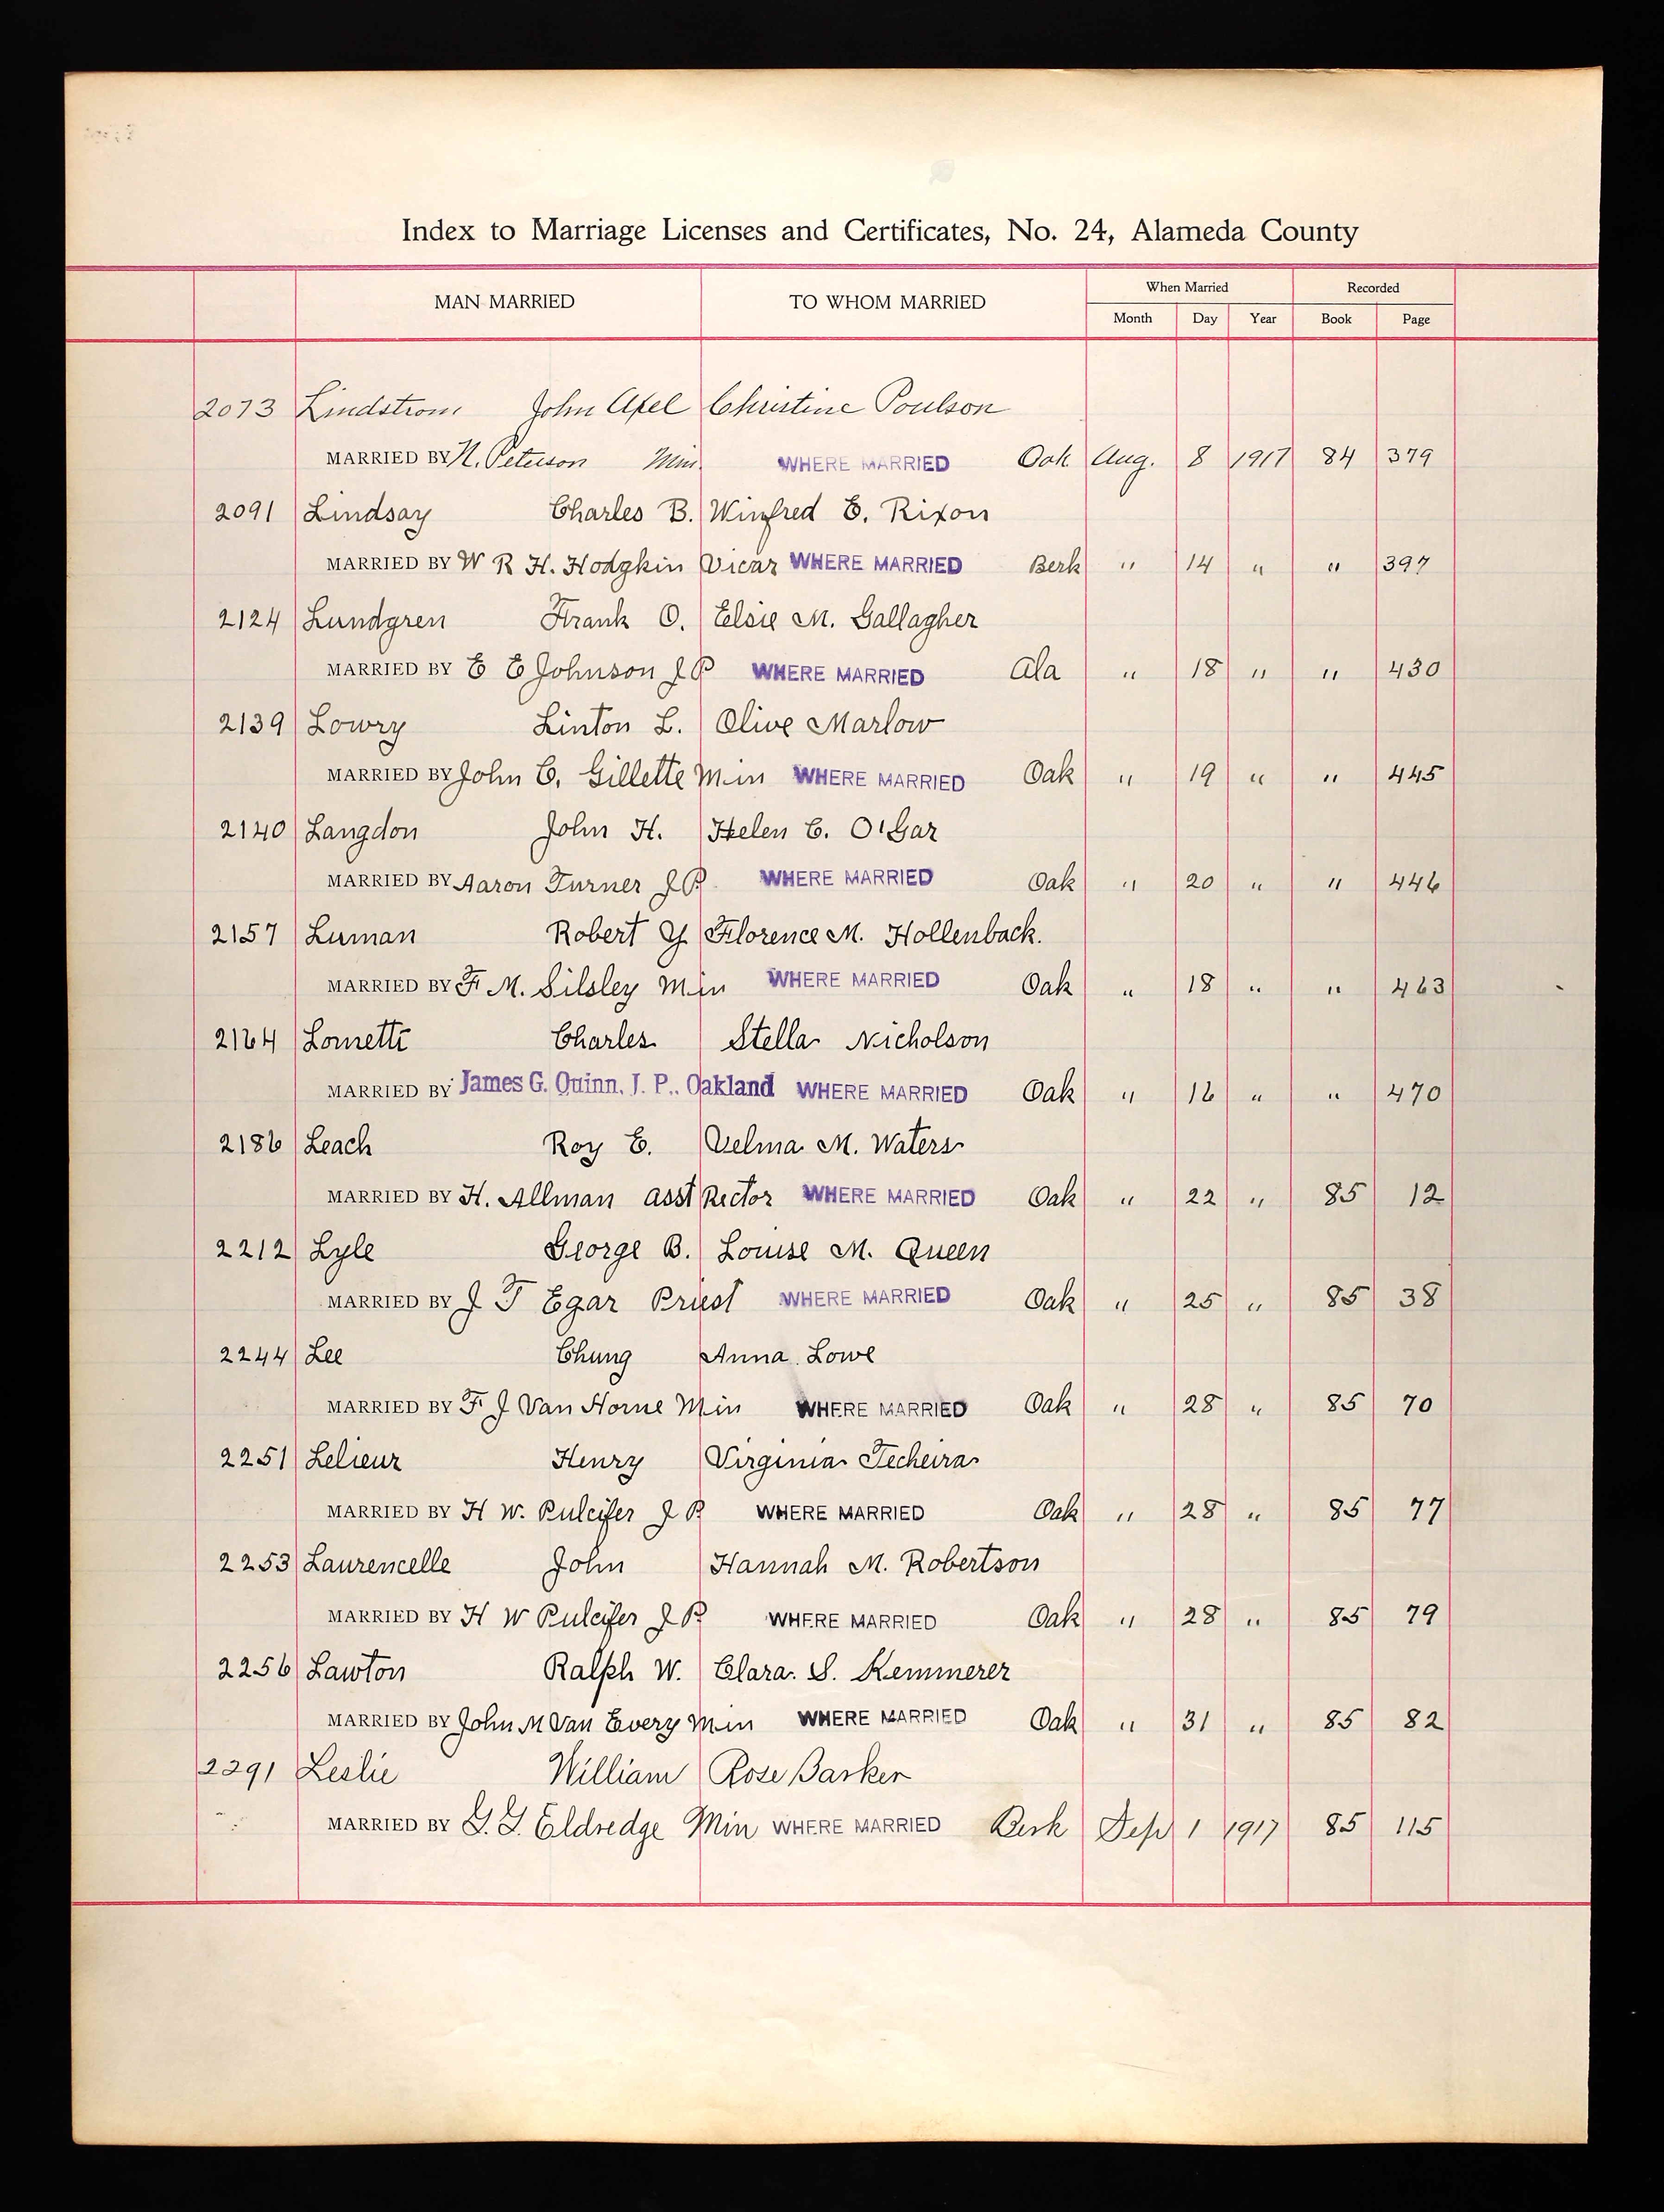 Index to Marriage Licenses and Certificates, No. 24, Alameda County
MAN MARRIED TO WHOM MARRIED When Married Recorded
Month Day Year Book Page
2073 Lindstrom John Axel Christine Poulson
MARRIED BY N. Peterson Min. WHERE MARRIED Oak Aug. 8 1917 84 379
2091 Lindsay Charles B. Winfred E. Rixon
MARRIED BY W R H. Hodgkin Vicar WHERE MARRIED Berk " 14 " " 397
2124 Lundgren Frank O. Elsie M. Gallagher
MARRIED BY E E Johnson J P WHERE MARRIED Ala " 18 " " 430
2139 Lowry Linton L. Olive Marlow
MARRIED BY John E. Gillette Min WHERE MARRIED Oak " 19 " " 445
2140 Langdon John H. Helen C. O'Gar
MARRIED BY Aaron Turner J P. WHERE MARRIED Oak " 20 " " 446
2157 Luman Robert Y Florence M. Hollenback.
MARRIED BY F. M. Silsley Min WHERE MARRIED Oak " 18 " " 463
2164 Lometti Charles Stella Nicholson
MARRIED BY James G. Quinn, J. P., Oakland WHERE MARRIED Oak " 16 " " 470
2186 Leach Roy E. Velma M. Waters
MARRIED BY H. Allman asst Rector WHERE MARRIED Oak " 22 " 85 12
2212 Lyle George B. Louise M. Queen
MARRIED BY J T Egar Priest WHERE MARRIED Oak " 25 " 85 38
2244 Lee Chung Anna Lowe
MARRIED BY F. J Van Horne Min WHERE MARRIED Oak " 28 " 85 70
2251 Lelieur Henry Virginia Techeira
MARRIED BY H W. Pulcifer J P. WHERE MARRIED Oak " 28 " 85 77
2253 Laurencelle John Hannah M. Robertson
MARRIED BY H W Pulcifer J P. WHERE MARRIED Oak " 28 " 85 79
2256 Lawton Ralph W. Clara S. Kemmerer
MARRIED BY John M Van Every Min WHERE MARRIED Oak " 31 " 85 82
2291 Leslie William Rose Barker
MARRIED BY G. G. Eldredge Min WHERE MARRIED Berk Sep 1 1917 85 115